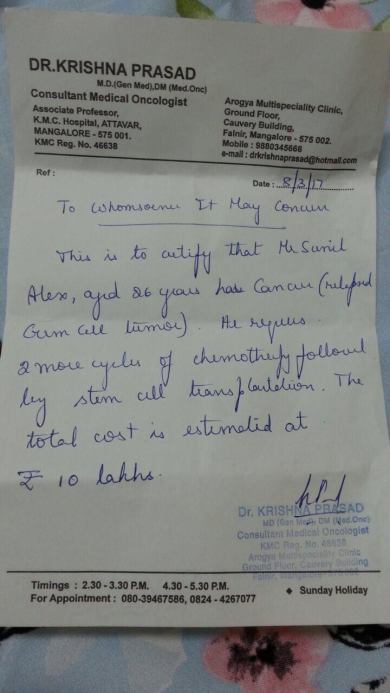 DR.KRISHNA PRASAD
M.D.(Gen Med),DM (Med.Onc)
Consultant Medical Oncologist
Associate Professor,
K.M.C. Hospital, ATTAVAR,
MANGALORE - 575 001.
KMC Reg. No. 46638
Arogya Multispeciality Clinic,
Ground Floor,
Cauvery Building,
Falnir, Mangalore - 575 002.
Mobile : 9880345668
e-mail : drkrishnaprasad@hotmail.com
Ref :
Date : 8/3/17
To Whomsoever It May Concern
This is to certify that Mr Sunil
Alex, aged 26 years has Cancer (relapsed
Germ cell tumor). He requires
2 more cycles of chemotherapy followed
by stem cell transplantation. The
total cost is estimated at
₹ 10 lakhs.
Dr. KRISHNA PRASAD
MD (Gen Med), DM (Med.Onc)
Consultant Medical Oncologist
KMC Reg. No. 46638
Arogya Multispeciality Clinic
Ground Floor, Cauvery Building
Falnir, Mangalore-575 002
Timings : 2.30 - 3.30 P.M. 4.30 - 5.30 P.M.
For Appointment : 080-39467586, 0824 - 4267077
◆ Sunday Holiday